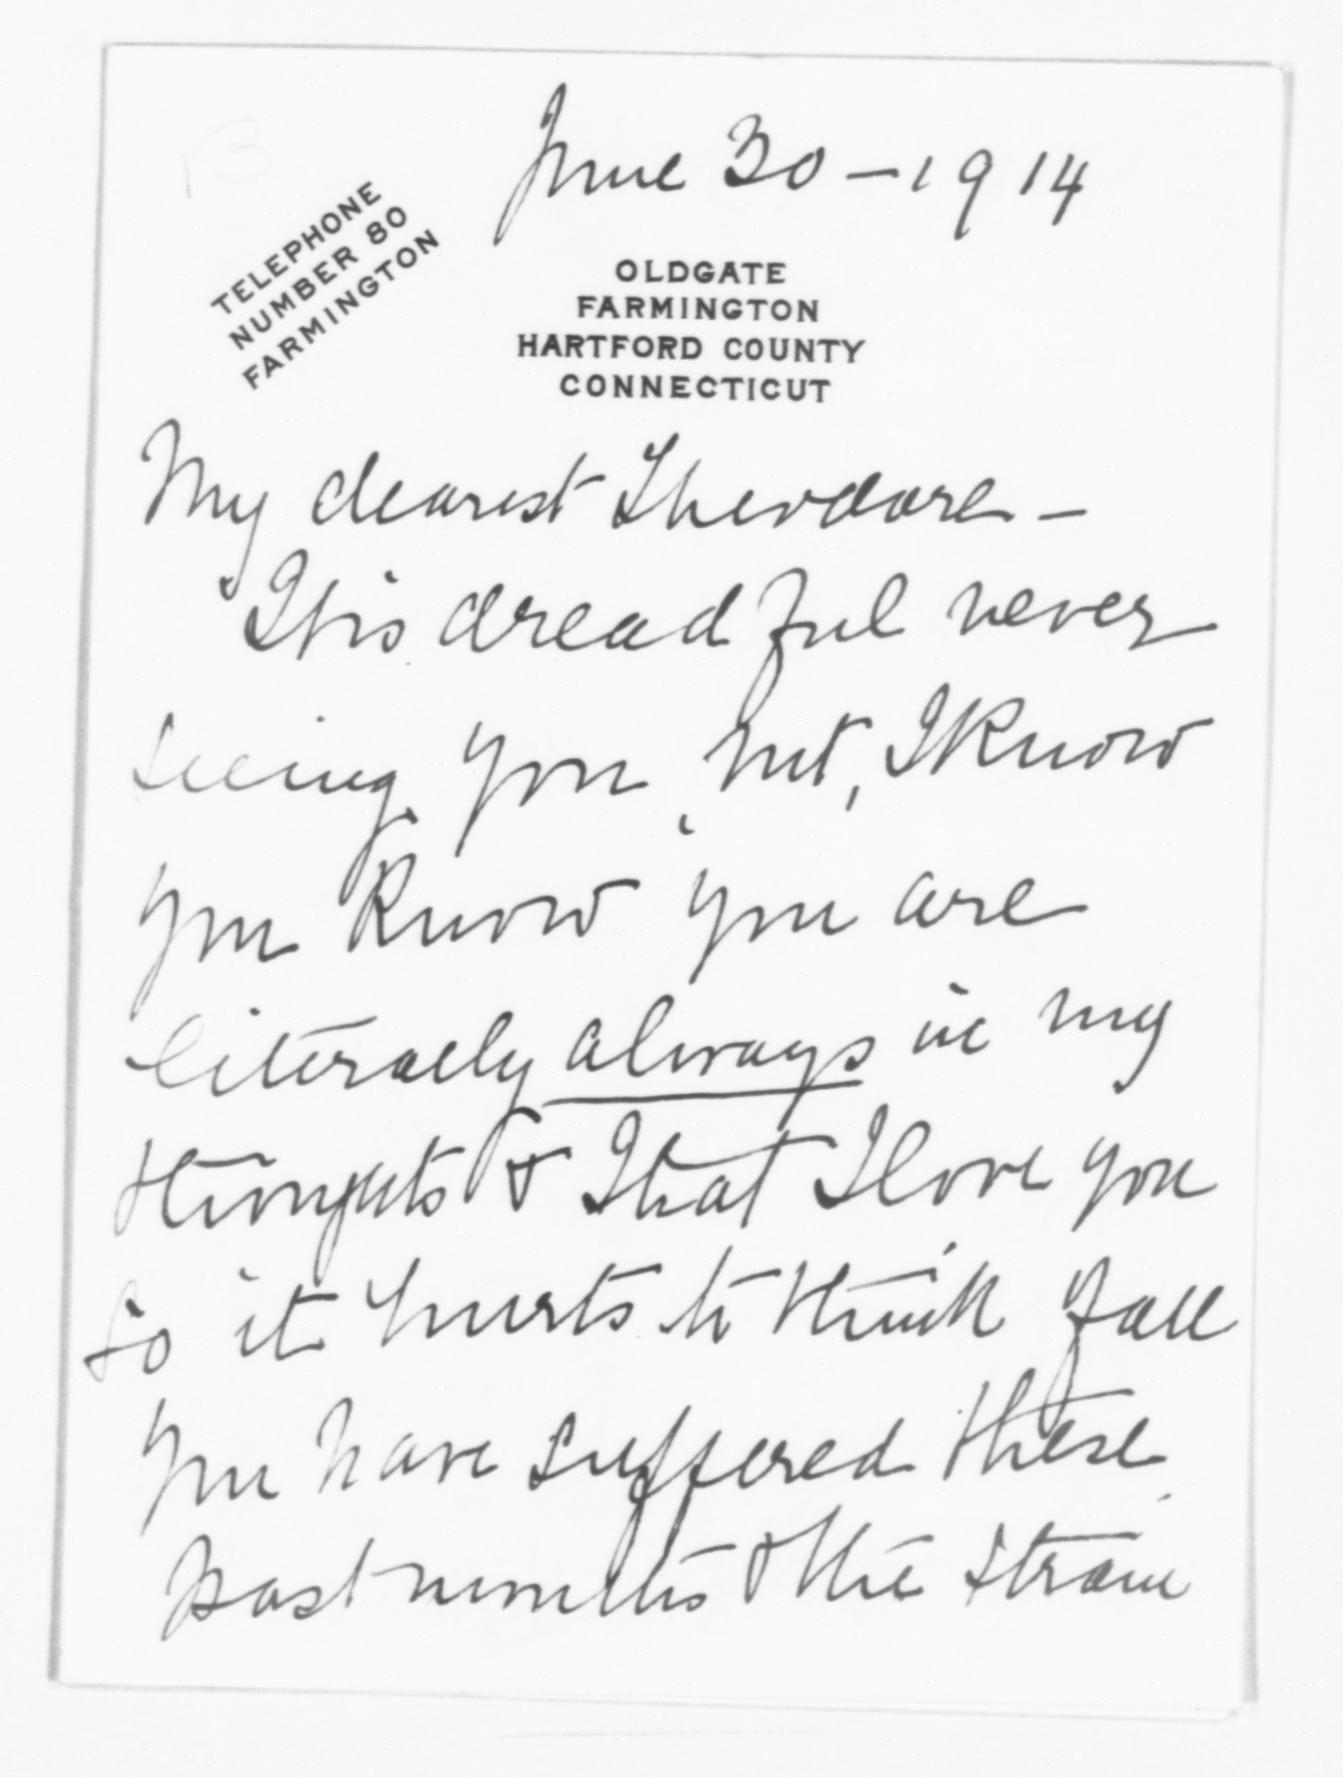 June 30 - 1914
TELEPHONE
NUMBER 80
FARMINGTON
OLDGATE
FARMINGTON
HARTFORD COUNTY
CONNECTICUT
My dearest Theodore -
It is dreadful never
seeing you, but, I know
you know you are
literally always in my
thoughts & that I love you
so it hurts to think of all
you have suffered these
past months & the strain